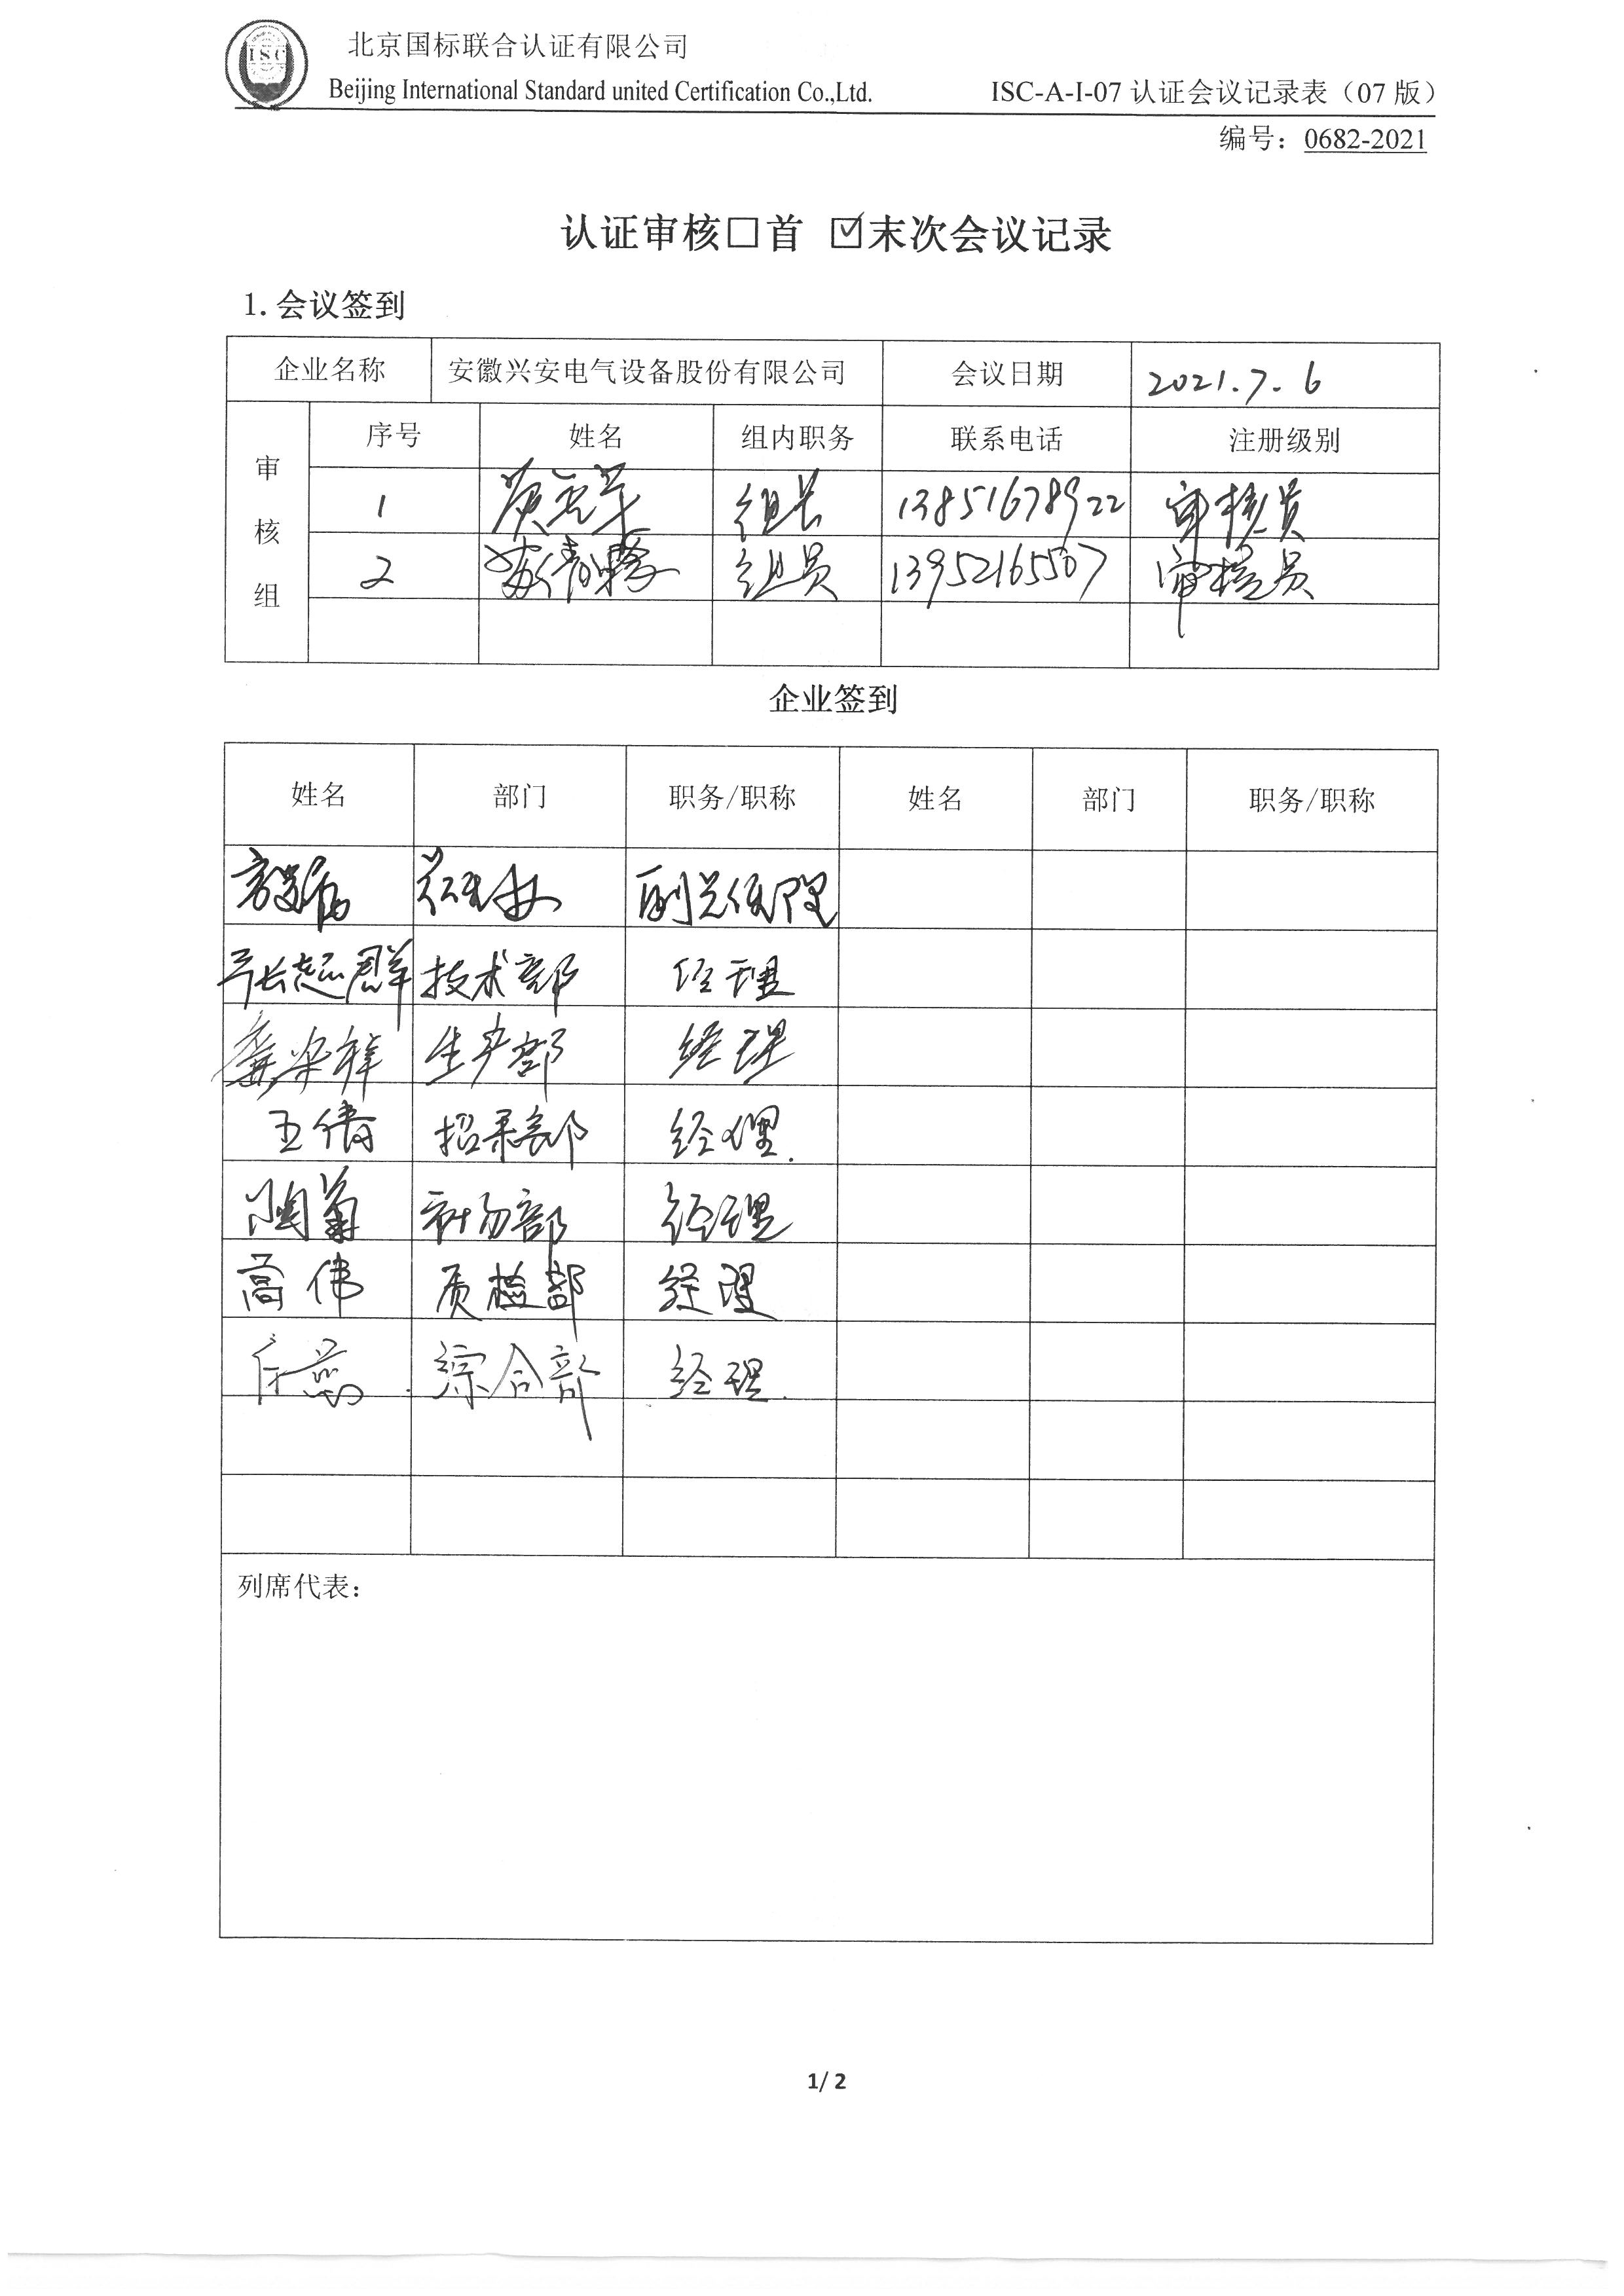 ISC
北京国标联合认证有限公司
Beijing International Standard united Certification Co.,Ltd. ISC-A-I-07 认证会议记录表（07 版）
编号：0682-2021
认证审核□首 ☑末次会议记录
1.会议签到
企业名称 安徽兴安电气设备股份有限公司 会议日期 2021.7.6
审核组 序号 姓名 组内职务 联系电话 注册级别
1 组长 13851678922 审核员
2 组员 13952165507 审核员
企业签到
姓名 部门 职务/职称 姓名 部门 职务/职称
副总经理
张超群 技术部 经理
生产部 经理
王倩 招采部 经理
陶菊 经理
高伟 质检部 经理
任蕊 综合部 经理
列席代表：
1/ 2